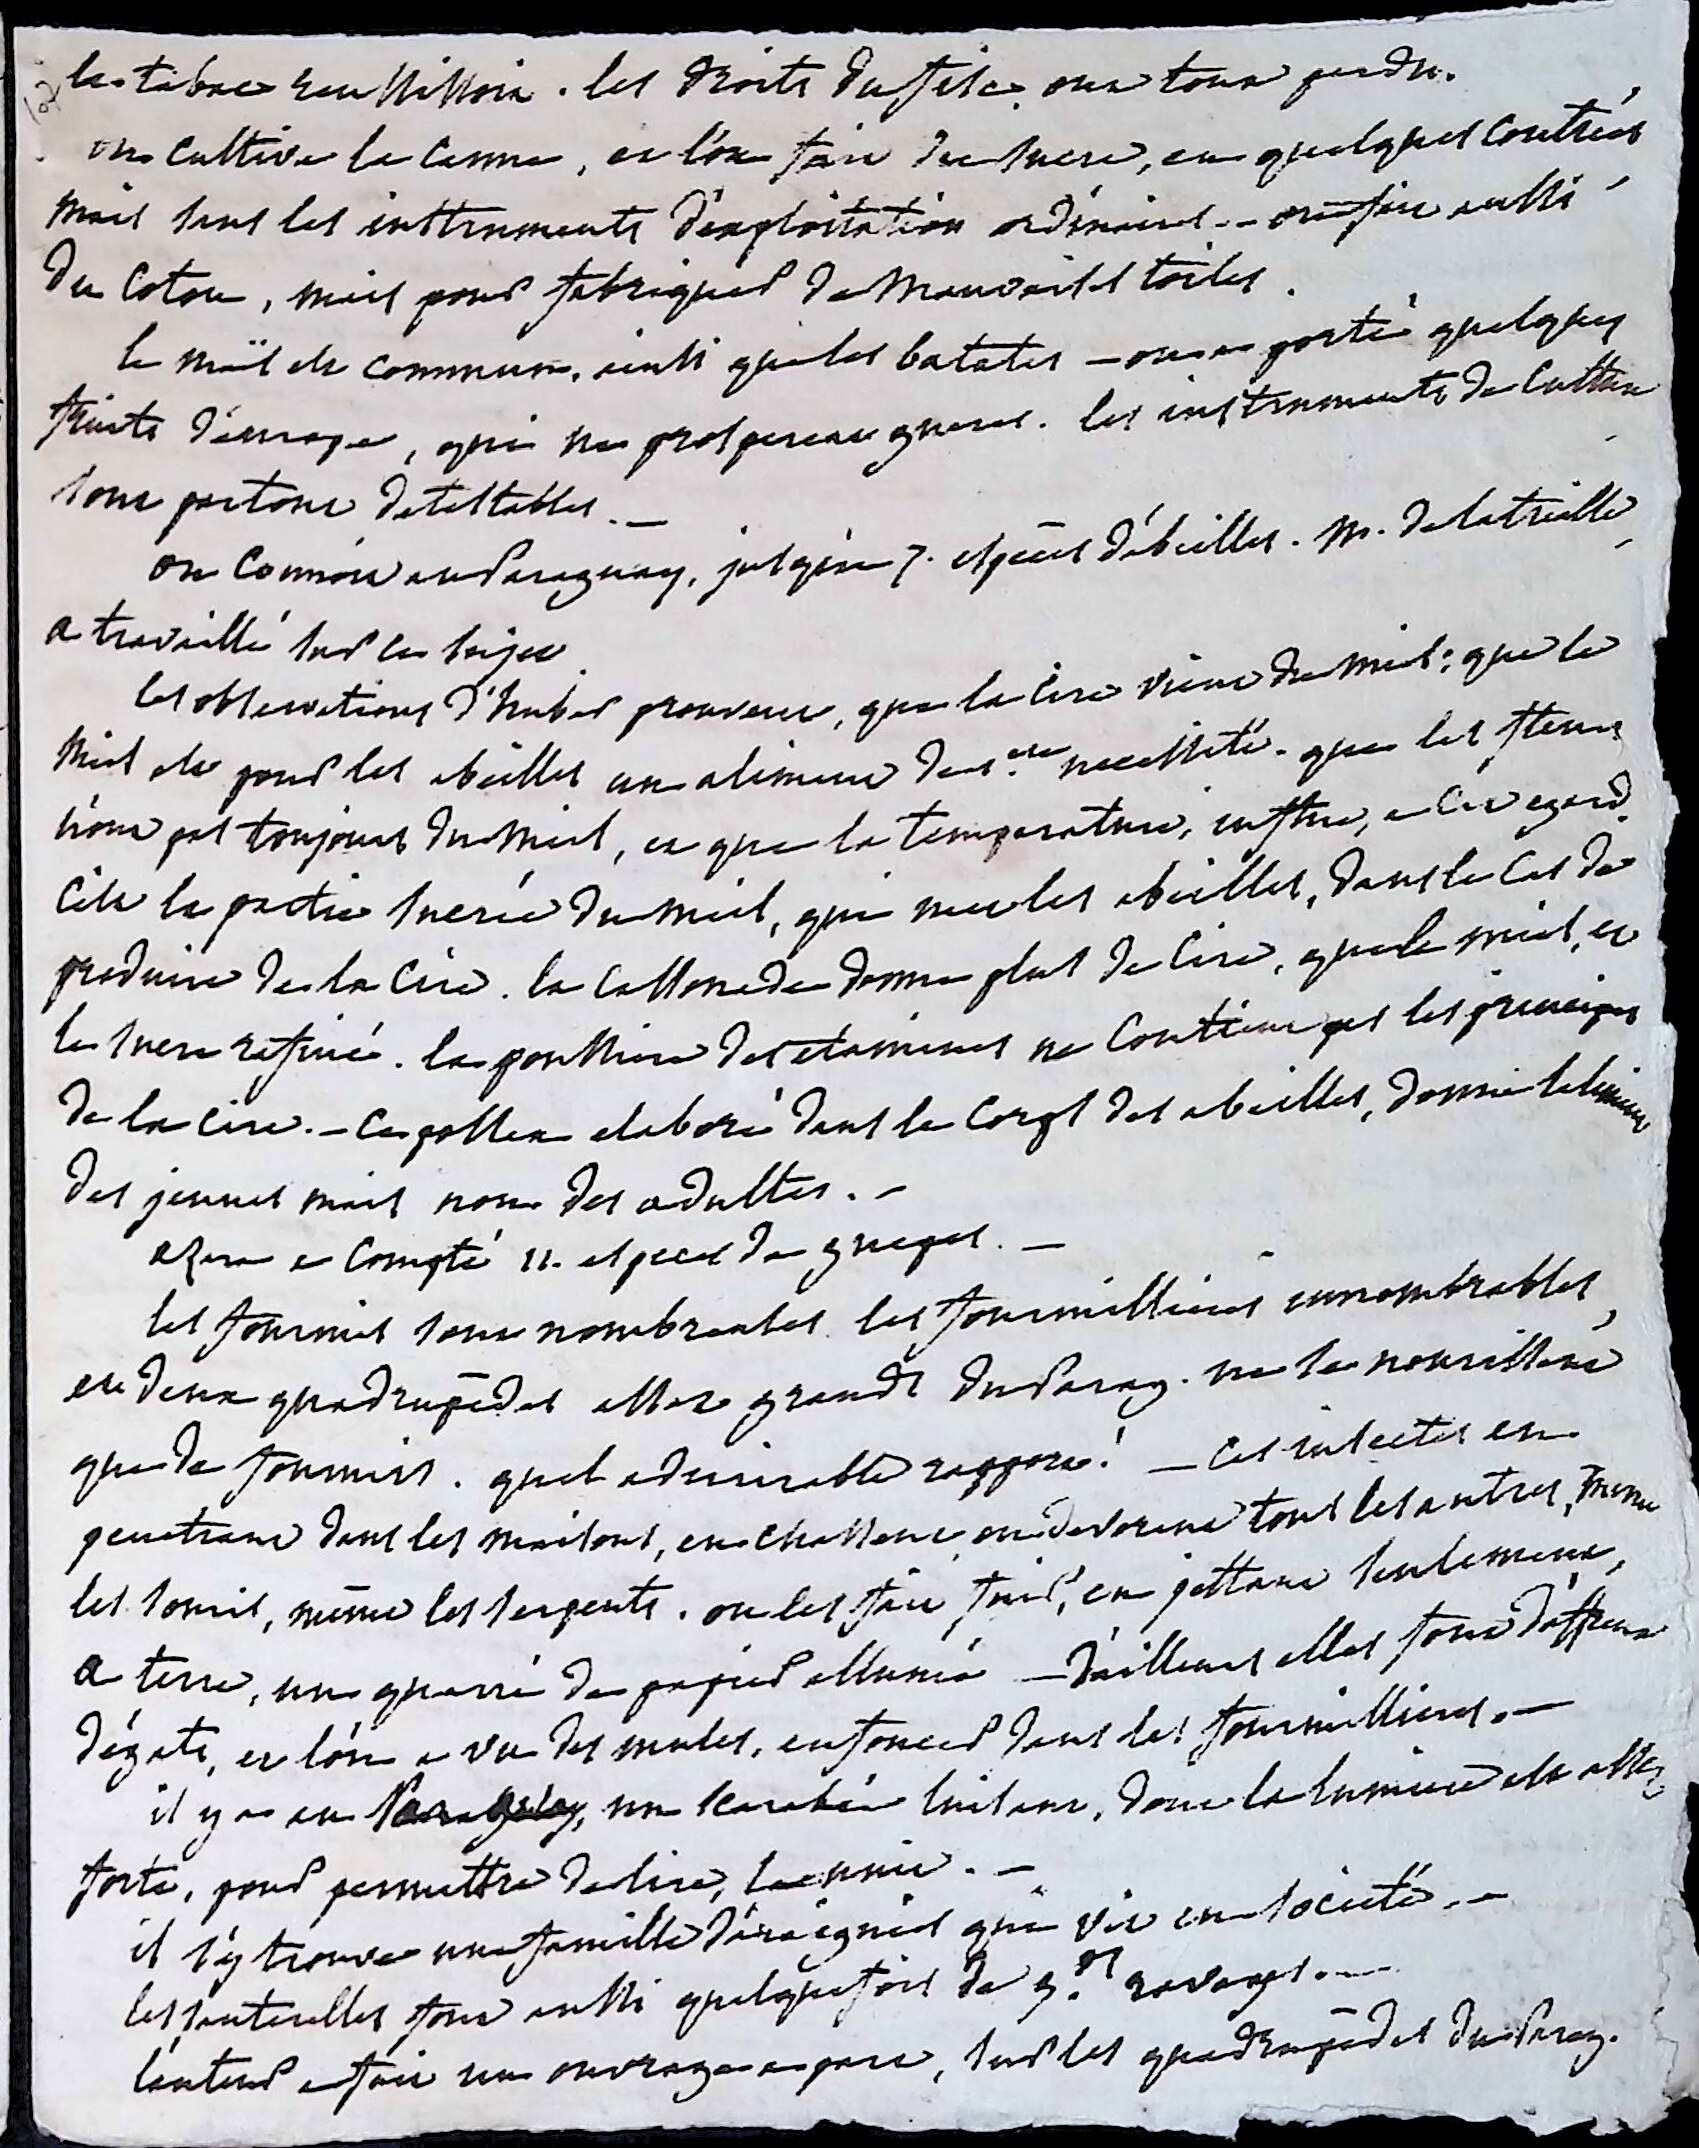 le tabac reussissoit. les droits du fisc, ont tout perdu.
on cultive la canne, et l'on fait du sucre, en quelques contrées
mais sans les instruments d'exploitation ordinaires -- on fait aussi
du coton, mais pour fabriquer de mauvaises toiles.
le maïs est commun, ainsi que les batates — on a porté quelques
fruits d'europe, qui ne prosperent gueres. les instruments de culture
sont partout detestables. —
on connoit au Paraguay, jusqu'a 7. especes d'abeilles. M. de latreille
a travaillé sur ce sujet.
les observations d'huber prouvent, que la cire vient du miel; que le
miel est pour les abeilles un aliment de 1.ere necessité. que les fleurs
n'ont pas toujours du miel, et que la temperature, influe, a cet egard.
c'est la partie sucrée du miel, qui met les abeilles, dans le cas de
produire de la cire. la cassonade donne plus de cire, que le miel, et
le sucre rafiné. la poussiere des etamines ne contient pas les principes
de la cire. — ce pollen elaboré dans le corps des abeilles, donne l'aliment
des jeunes mais non des adultes. —
azara a compté 11. especes de guepes. —
les fourmis sont nombreuses les fourmillieres innombrables,
et deux quadrupedes assez grands du Parag. ne se nourissent
que de fourmis. quel admirable rapport! — ces insectes en
penetrant dans les maisons, en chassent ou devorent tous les autres, meme
les souris, même les serpents. on les fait fuir, en jettant seulement,
a terre, un quarré de papier allumé — d'ailleurs elles font d'affreux
dégats, et l'on a vu des mules, enfoncer dans les fourmillieres. —
il y a au Paraguay, un scarabée luisant, dont la lumiere est assez
forte, pour permettre de lire, la nuit. —
il s'y trouve une famille d'araignées qui vit en societé. —
les sauterelles font aussi quelquefois de g.ds ravages. —
l'auteur a fait un ouvrage a part, sur les quadrupedes du Parag.